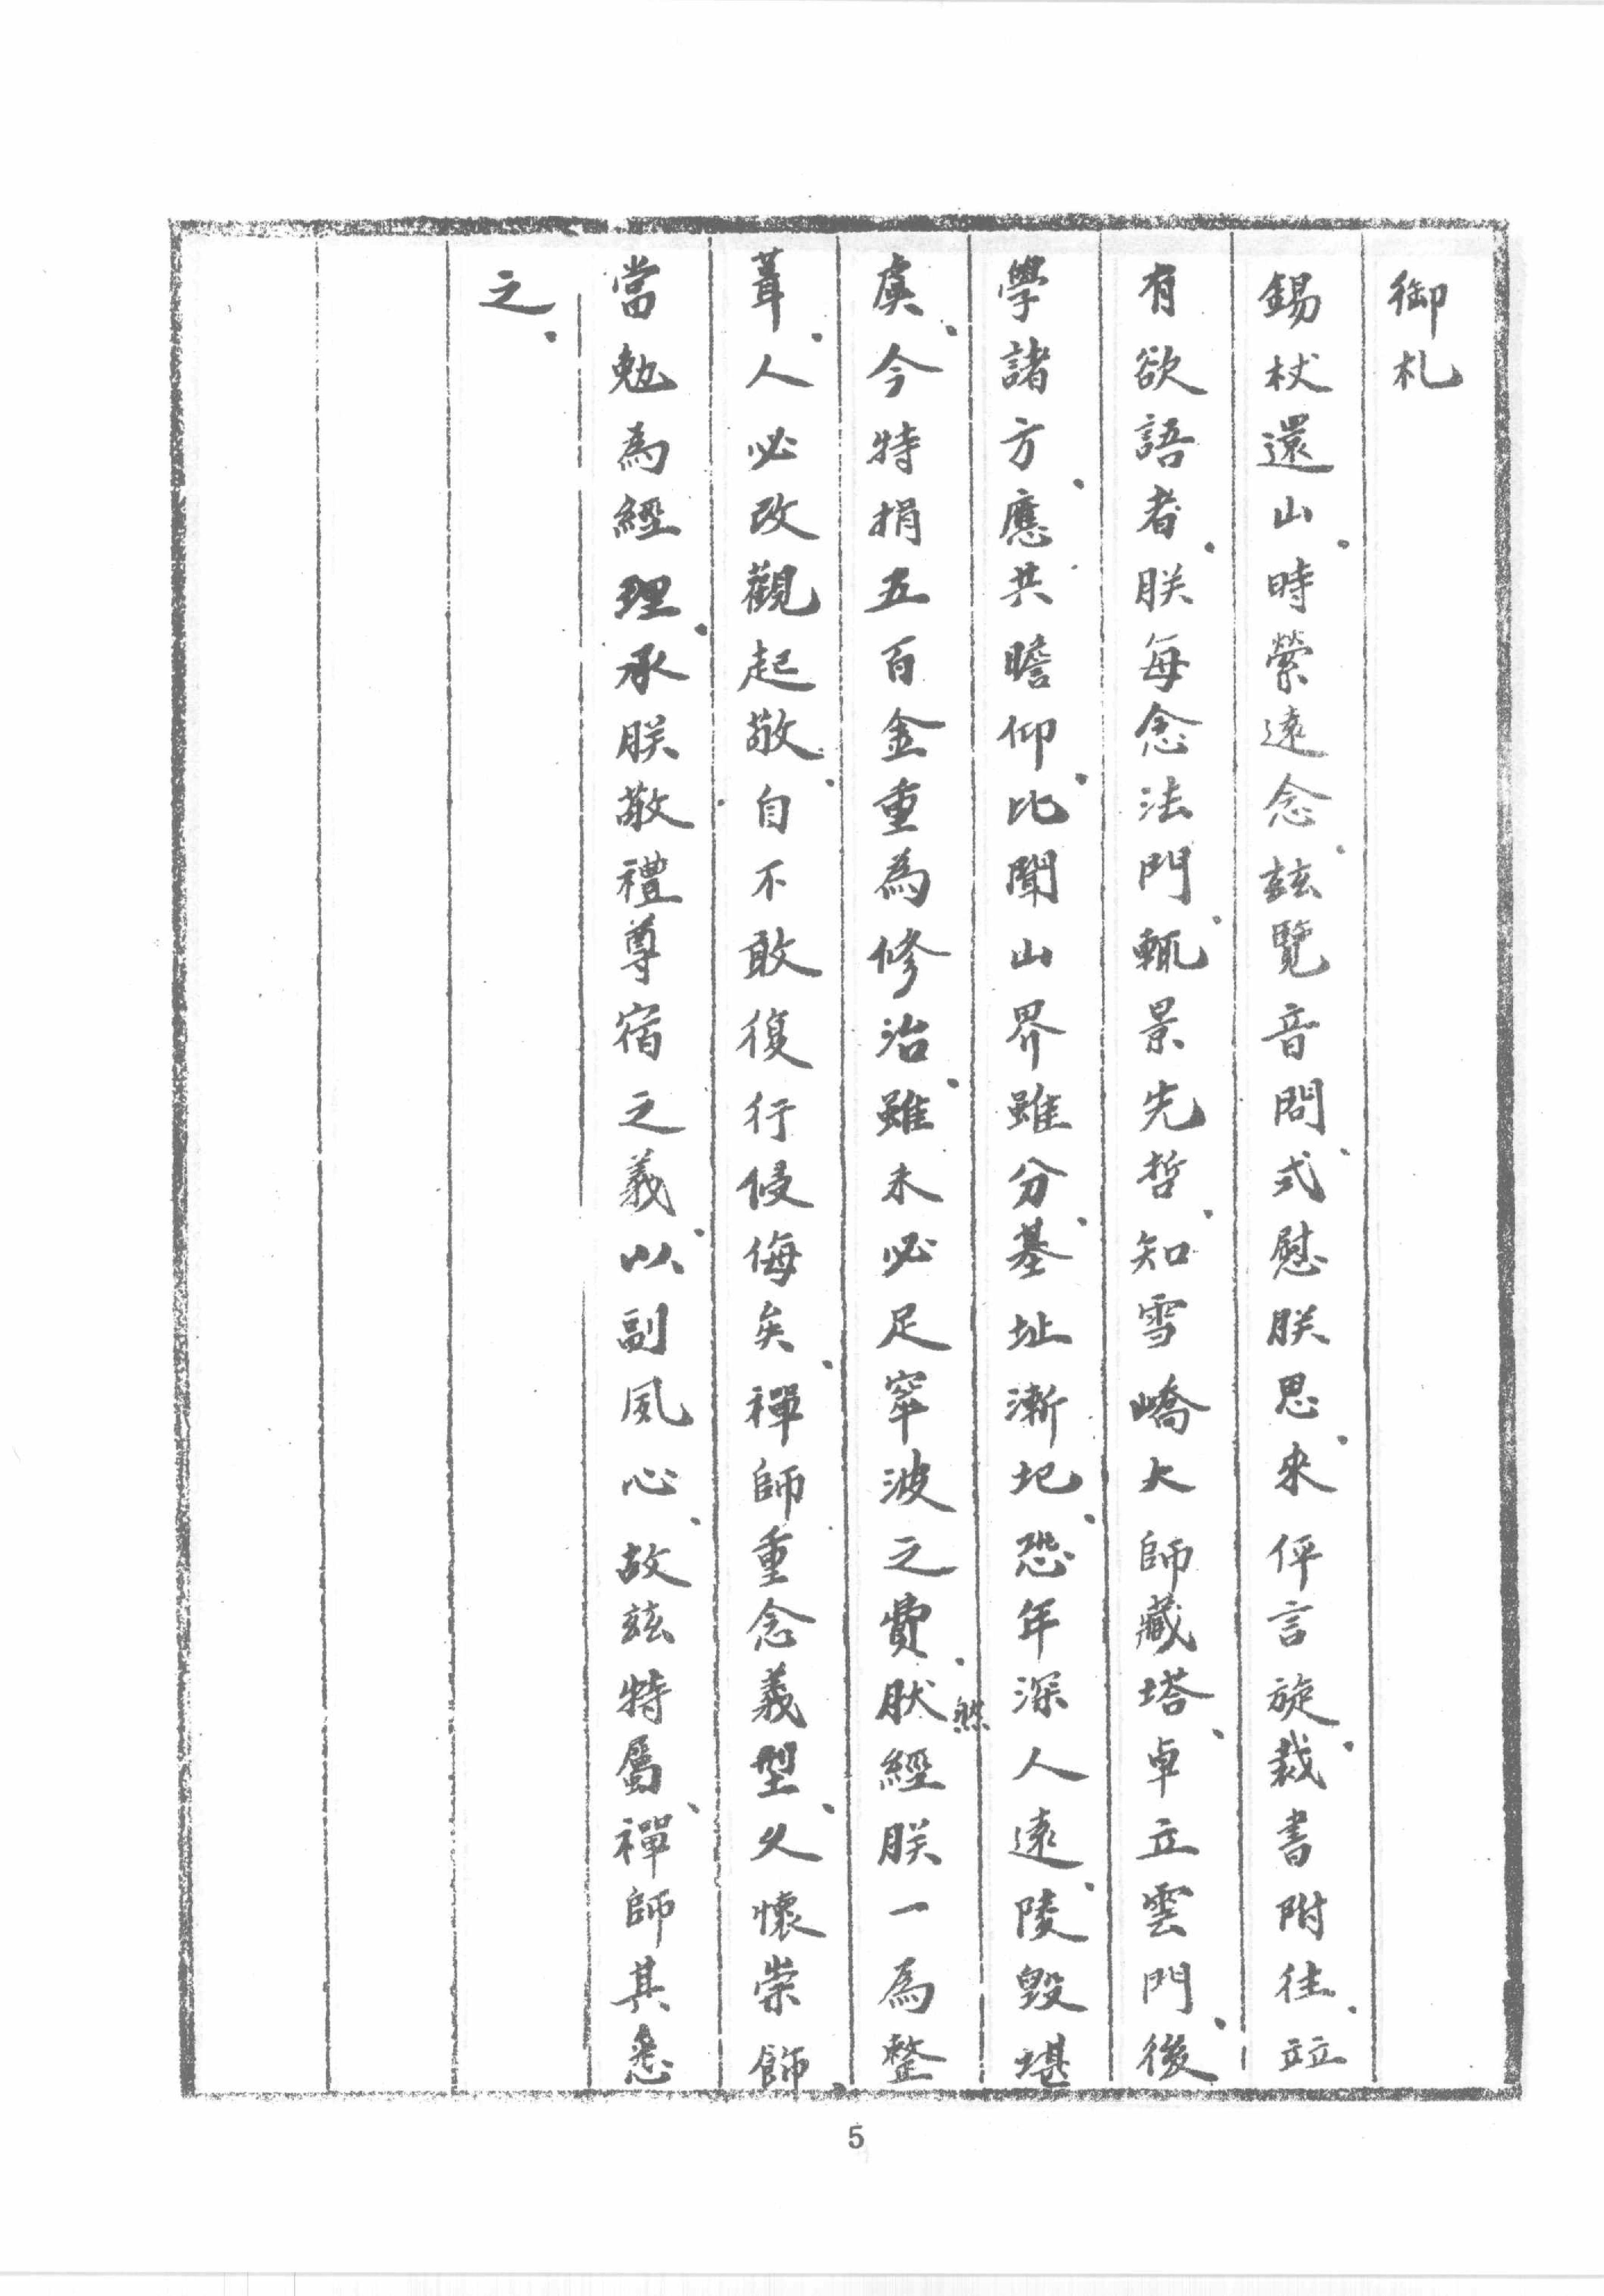 御札
錫杖還山、時縈遠念、玆覽音問、式慰朕思、來伻言旋、裁書附往、竝
有欲語者、朕每念法門、輒景先哲、知雪嶠大師藏塔、卓立雲門、後
學諸方、應共瞻仰、比聞山界雖分、基址漸圮、恐年深人遠、陵毀堪
虞、今特捐五百金重為修治、雖未必足窣波之費、肰經朕一為整
然
葺、人必改觀起敬、自不敢復行侵侮矣、禪師重念義型、久懷崇飾、
當勉為經理、承朕敬禮尊宿之義、以副夙心、故玆特屬、禪師其悉
之、
5